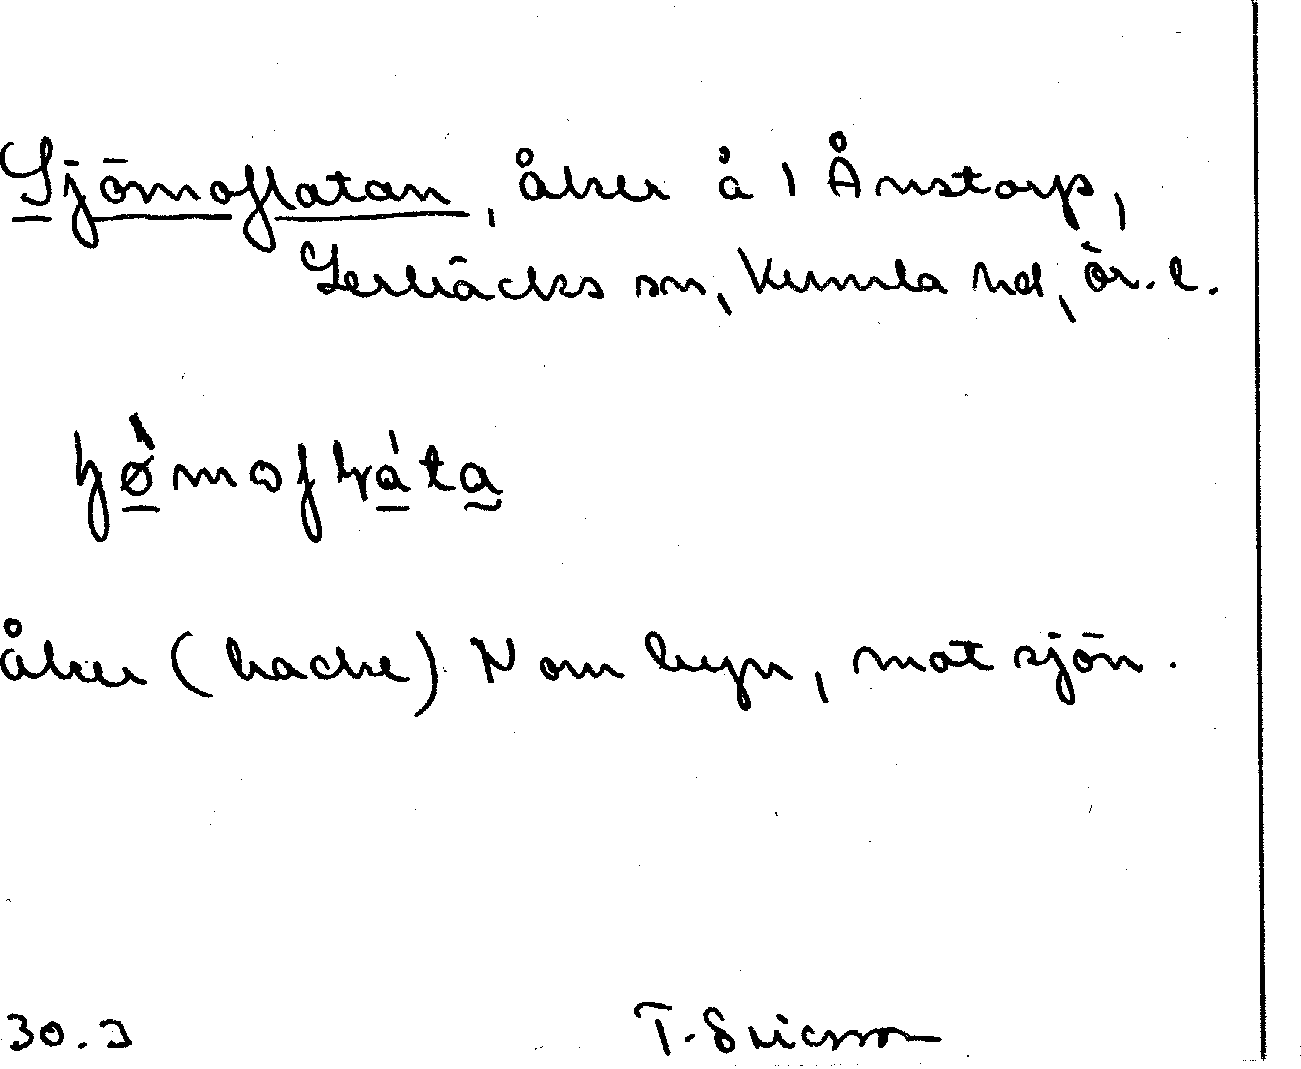 Sjömoflatan, åker å 1 Ånstorp,
Lerbäcks sn, Kumla hd, Ör. l.
åker (backe) N om byn, mot sjön.
30.
T. Ericsson